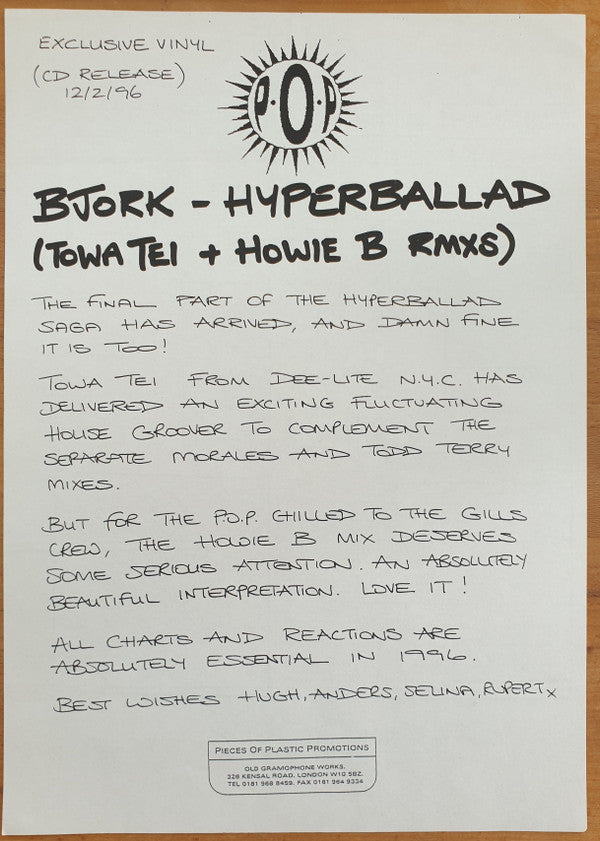 EXCLUSIVE VINYL
(CD RELEASE)
12/2/96
P.O.P
BJORK - HYPERBALLAD
(TOWA TEI + HOWIE B RMXS)
THE FINAL PART OF THE HYPERBALLAD
SAGA HAS ARRIVED, AND DAMN FINE
IT IS TOO!
TOWA TEI FROM DEE-LITE N.Y.C. HAS
DELIVERED AN EXCITING FLUCTUATING
HOUSE GROOVER TO COMPLEMENT THE
SEPARATE MORALES AND TODD TERRY
MIXES.
BUT FOR THE P.O.P. CHILLED TO THE GILLS
CREW, THE HOWIE B MIX DESERVES
SOME SERIOUS ATTENTION. AN ABSOLUTELY
BEAUTIFUL INTERPRETATION. LOVE IT!
ALL CHARTS AND REACTIONS ARE
ABSOLUTELY ESSENTIAL IN 1996.
BEST WISHES HUGH, ANDERS, SELINA, RUPERT x
PIECES OF PLASTIC PROMOTIONS
OLD GRAMOPHONE WORKS.
326 KENSAL ROAD. LONDON W10 5BZ.
TEL 0181 968 8459. FAX 0181 964 9334